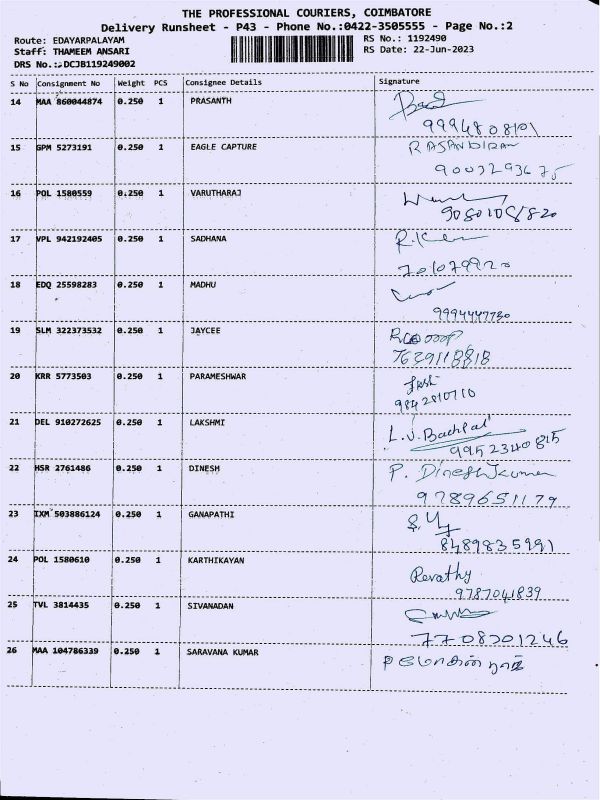 THE PROFESSIONAL COURIERS, COIMBATORE
Delivery Runsheet - P43 - Phone No.:0422-3505555 - Page No.:2
Route: EDAYARPALAYAM RS No.: 1192490
Staff: THAMEEM ANSARI RS Date: 22-Jun-2023
DRS No.: DCJB119249002
S No Consignment No Weight PCS Consignee Details Signature
14 MAA 860044874 0.250 1 PRASANTH
9994808101
15 GPM 5273191 0.250 1 EAGLE CAPTURE RAJANDIRAN
9003293675
16 POL 1580559 0.250 1 VARUTHARAJ
17 VPL 942192405 0.250 1 SADHANA
18 EDQ 25598283 0.250 1 MADHU
9994447730
19 SLM 322373532 0.250 1 JAYCEE
7639118818
20 KRR 5773503 0.250 1 PARAMESHWAR
9842810710
21 DEL 910272625 0.250 1 LAKSHMI
9952340815
22 HSR 2761486 0.250 1 DINESH P. Dineshkumar
9789651179
23 IXM 503886124 0.250 1 GANAPATHI
8489835991
24 POL 1580610 0.250 1 KARTHIKAYAN Revathy
9787041839
25 TVL 3814435 0.250 1 SIVANADAN
7708201246
26 MAA 104786339 0.250 1 SARAVANA KUMAR